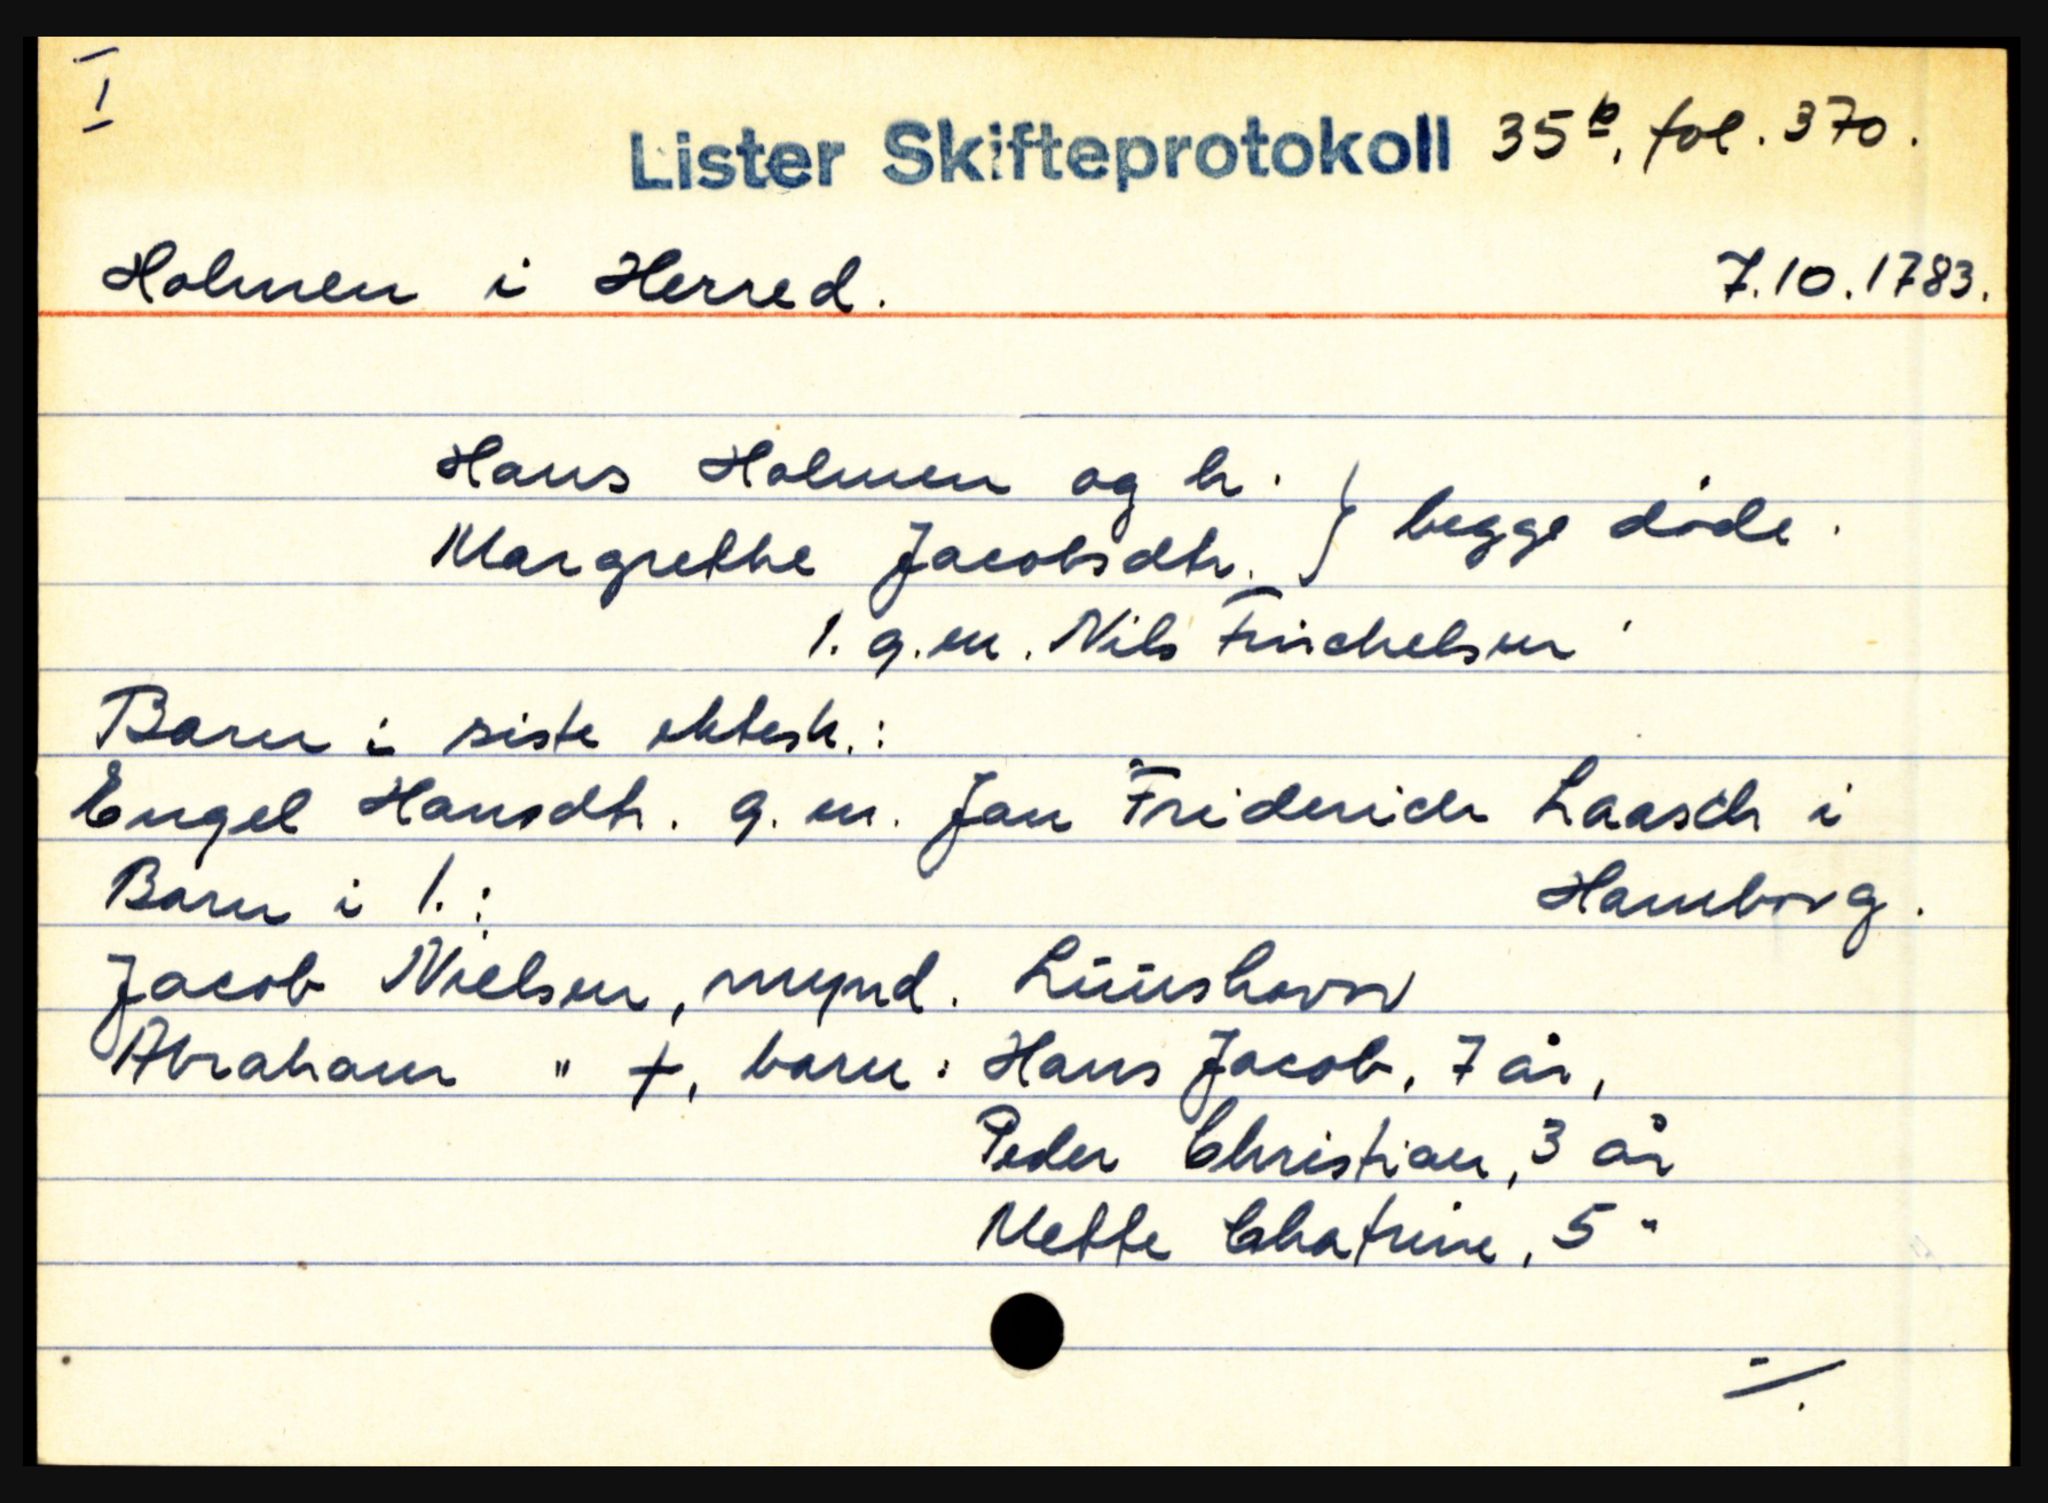 I
Lister Skifteprotokoll 35b, fol. 370.
Holmen i Herred. 7.10.1783.
Hans Holmen og h.
Margrethe Jacobsdtr. } begge døde.
1. g.m. Nils Frichelsen
Barn i siste ektesk.:
Engel Hansdtr. g.m. Jan Friderich Laasch i
Hamborg.
Barn i 1.:
Jacob Nielsen, mynd. Lüüshavn
Abraham " +, barn: Hans Jacob, 7 år,
Peder Christian, 3 år
Mette Chatrine, 5 "